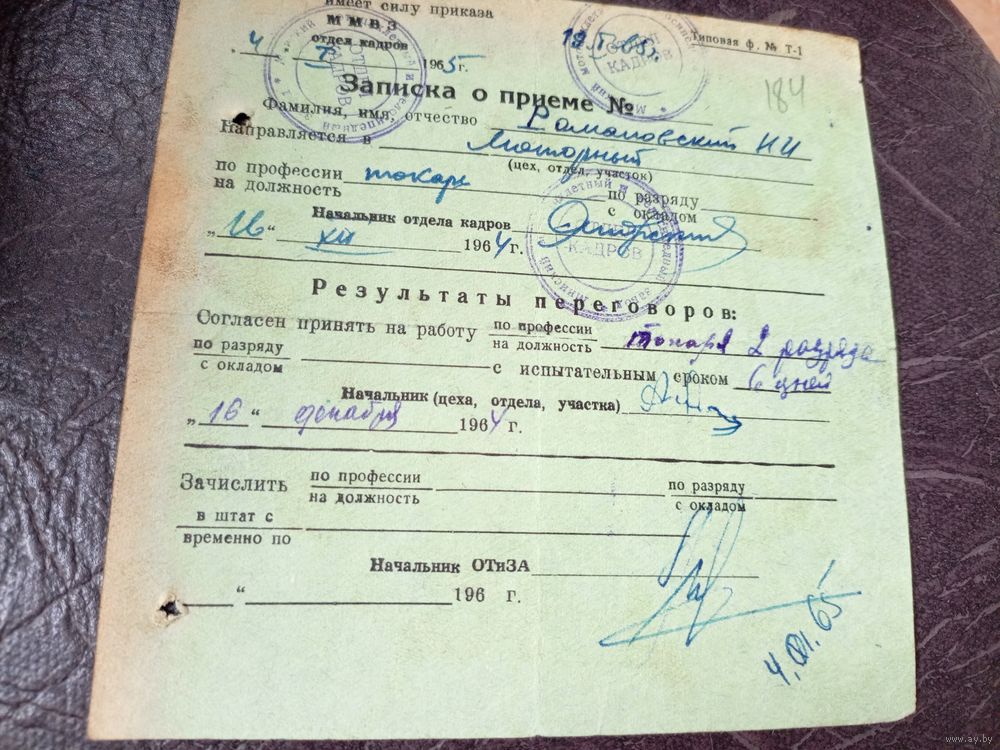 имеет силу приказа
ММВЗ
отдел кадров
Типовая ф. № Т-1
4 1965 г.
184
Записка о приеме №
Фамилия, имя, отчество Романовский НИ
Направляется в Моторный
(цех, отдел, участок)
по профессии токаря по разряду
на должность с окладом
Начальник отдела кадров
„16“ XII 1964 г.
ОТДЕЛ КАДРОВ
Результаты переговоров:
Согласен принять на работу по профессии Токаря 2 разряда
на должность
по разряду с испытательным сроком 6 дней
с окладом
Начальник (цеха, отдела, участка)
„16“ декабря 1964 г.
Зачислить по профессии по разряду
на должность с окладом
в штат с
временно по
Начальник ОТиЗА
“ 196 г.
4.01.65
www.ay.by